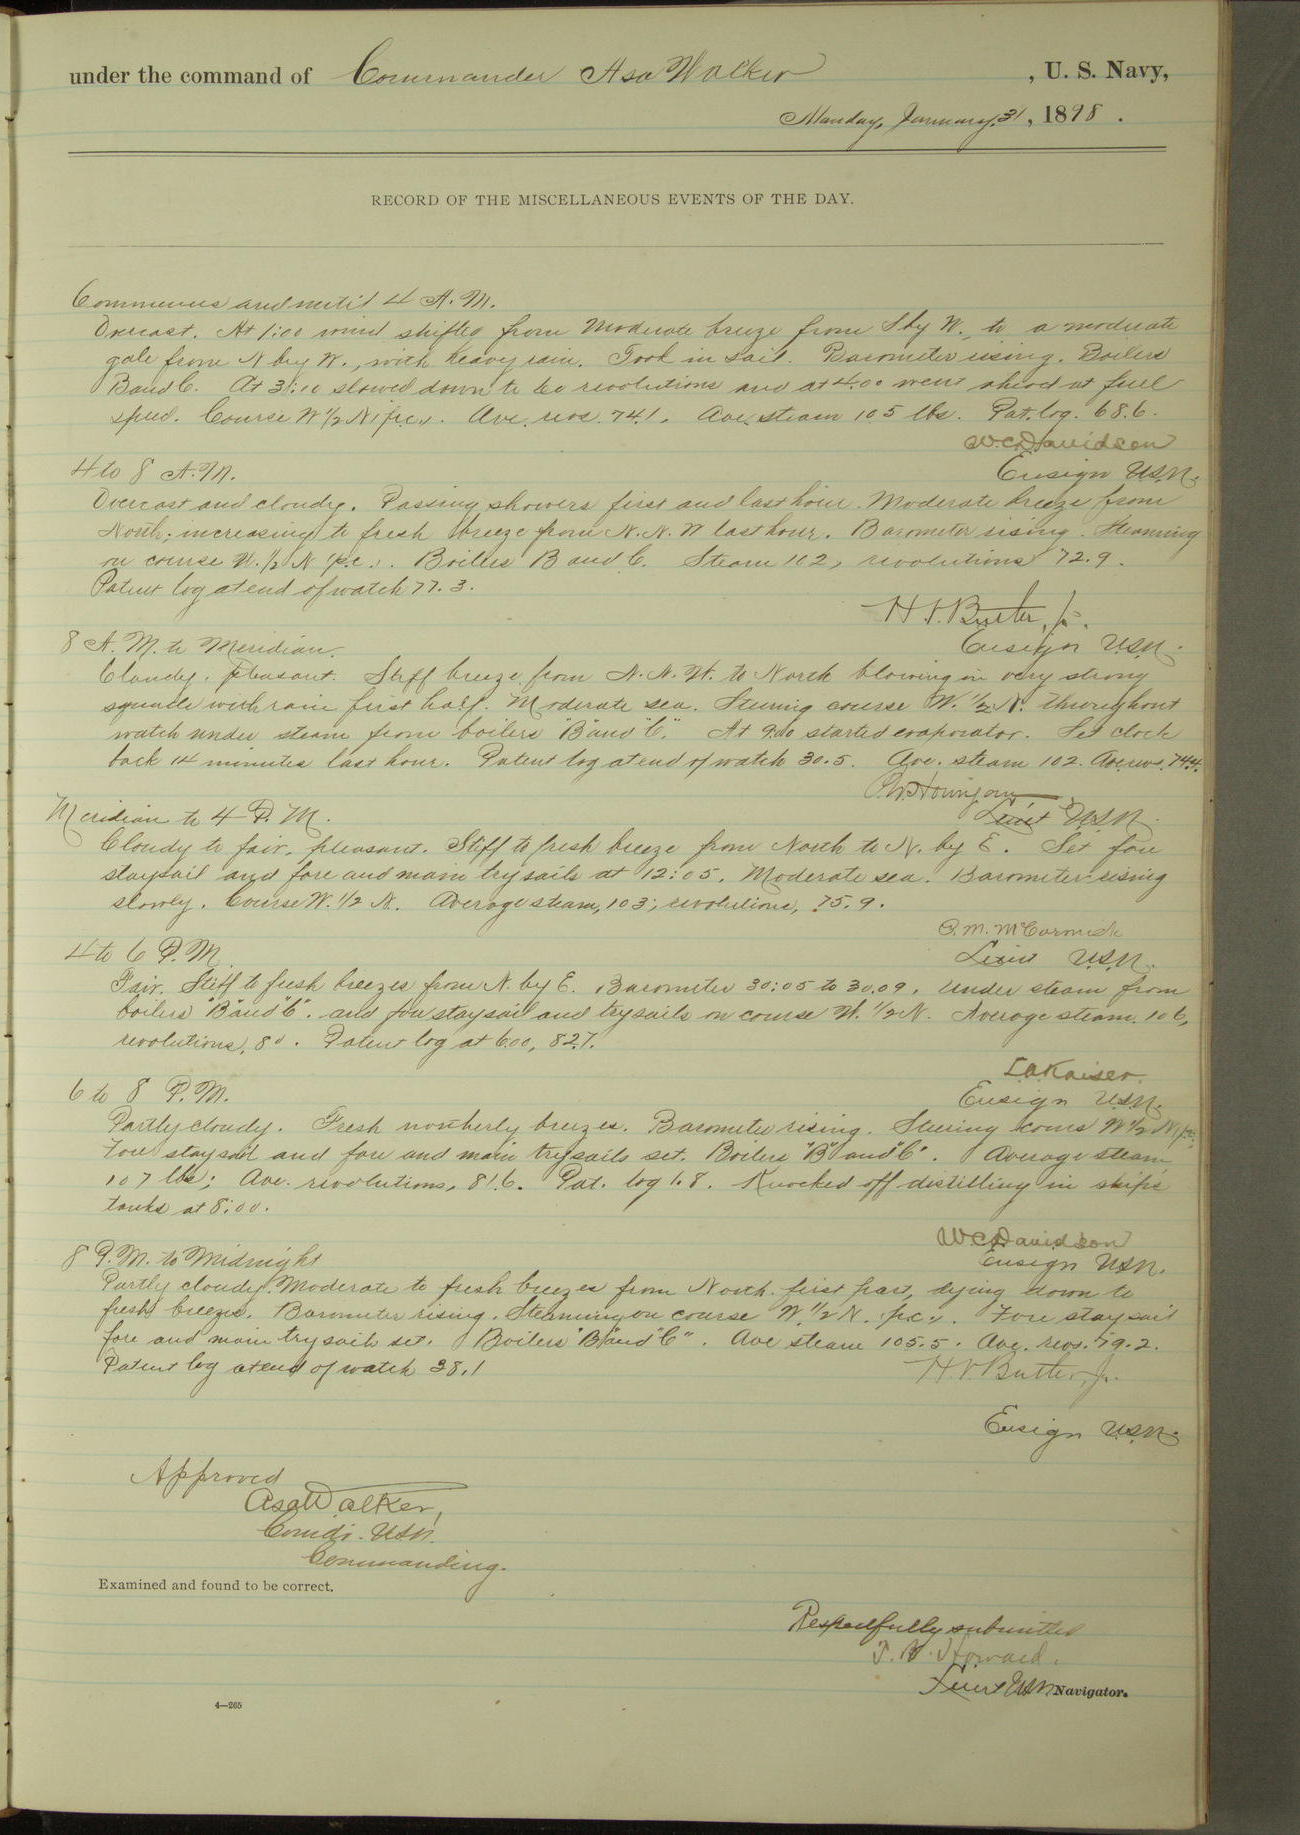 under the command of Commander Asa Walker, U. S. Navy,
Monday, January, 31, 1898.
RECORD OF THE MISCELLANEOUS EVENTS OF THE DAY.
Commences and until 4 A.M.
Overcast. At 1:00 wind shifted from moderate breeze from S by W. to a moderate
gale from N by W., with heavy rain. Took in sail. Barometer rising. Boilers
B and C. At 3:10 slowed down to 60 revolutions and at 4.00 went ahead at full
speed. Course W 1/2 N p.c. Ave. revs. 74.1. Ave. steam 105 lbs. Pat. log. 68.6.
W.C. Davidson
4 to 8 A.M.
Ensign U.S.N.
Overcast and cloudy. Passing showers first and last hour. Moderate breeze from
North; increasing to fresh breeze from N.N.W last hour. Barometer rising. Steaming
on course W. 1/2 N p.c. Boilers B and C. Steam 102, revolutions 72.9.
Patent log at end of watch 77.3.
H.V. Butler, Jr.
Ensign U.S.N.
8 A.M. to Meridian.
Cloudy, pleasant. Stiff breeze from N.N.W. to North blowing in very strong
squalls with rain first half. Moderate sea. Steering course W. 1/2 N. throughout
watch under steam from boilers "B" and "C". At 9:00 started evaporator. Set clock
back 14 minutes last hour. Patent log at end of watch 30.5. Ave. steam 102. Ave. revs. 74.4.
Lieut U.S.N.
Meridian to 4 P.M.
Cloudy to fair, pleasant. Stiff to fresh breeze from North to N. by E. Set fore
staysail and fore and main trysails at 12:05. Moderate sea. Barometer rising
slowly. Course W. 1/2 N. Average steam, 103; revolutions, 75.9.
C.M. McCormick
4 to 6 P.M.
Lieut U.S.N.
Fair. Stiff to fresh breezes from N. by E. Barometer 30:05 to 30.09. Under steam from
boilers "B" and "C". and fore staysail and trysails on course W. 1/2 N. Average steam, 106,
revolutions, 80. Patent log at 6:00, 82.7.
L.A. Kaiser.
6 to 8 P.M.
Ensign U.S.N.
Partly cloudy. Fresh northerly breezes. Barometer rising. Steering course W 1/2 N p.c.
Fore staysail and fore and main trysails set. Boilers "B" and "C". Average steam
107 lbs; Ave. revolutions, 81.6. Pat. log 1.8. Knocked off distilling in ships
tanks at 8:00.
W.C. Davidson
8 P.M. to Midnight
Ensign U.S.N.
Partly cloudy. Moderate to fresh breezes from North first part, dying down to
fresh breezes. Barometer rising. Steaming on course W. 1/2 N. p.c. Fore staysail
fore and main trysails set. Boilers "B" and "C". Ave steam 105.5. Ave. revs. 79.2.
Patent log at end of watch 38.1
H.V. Butler, Jr.
Ensign U.S.N.
Approved
Asa Walker,
Comdr. U.S.N.
Commanding.
Examined and found to be correct.
Respectfully submitted
T. B. Howard.
Lieut U.S.N. Navigator.
4—265